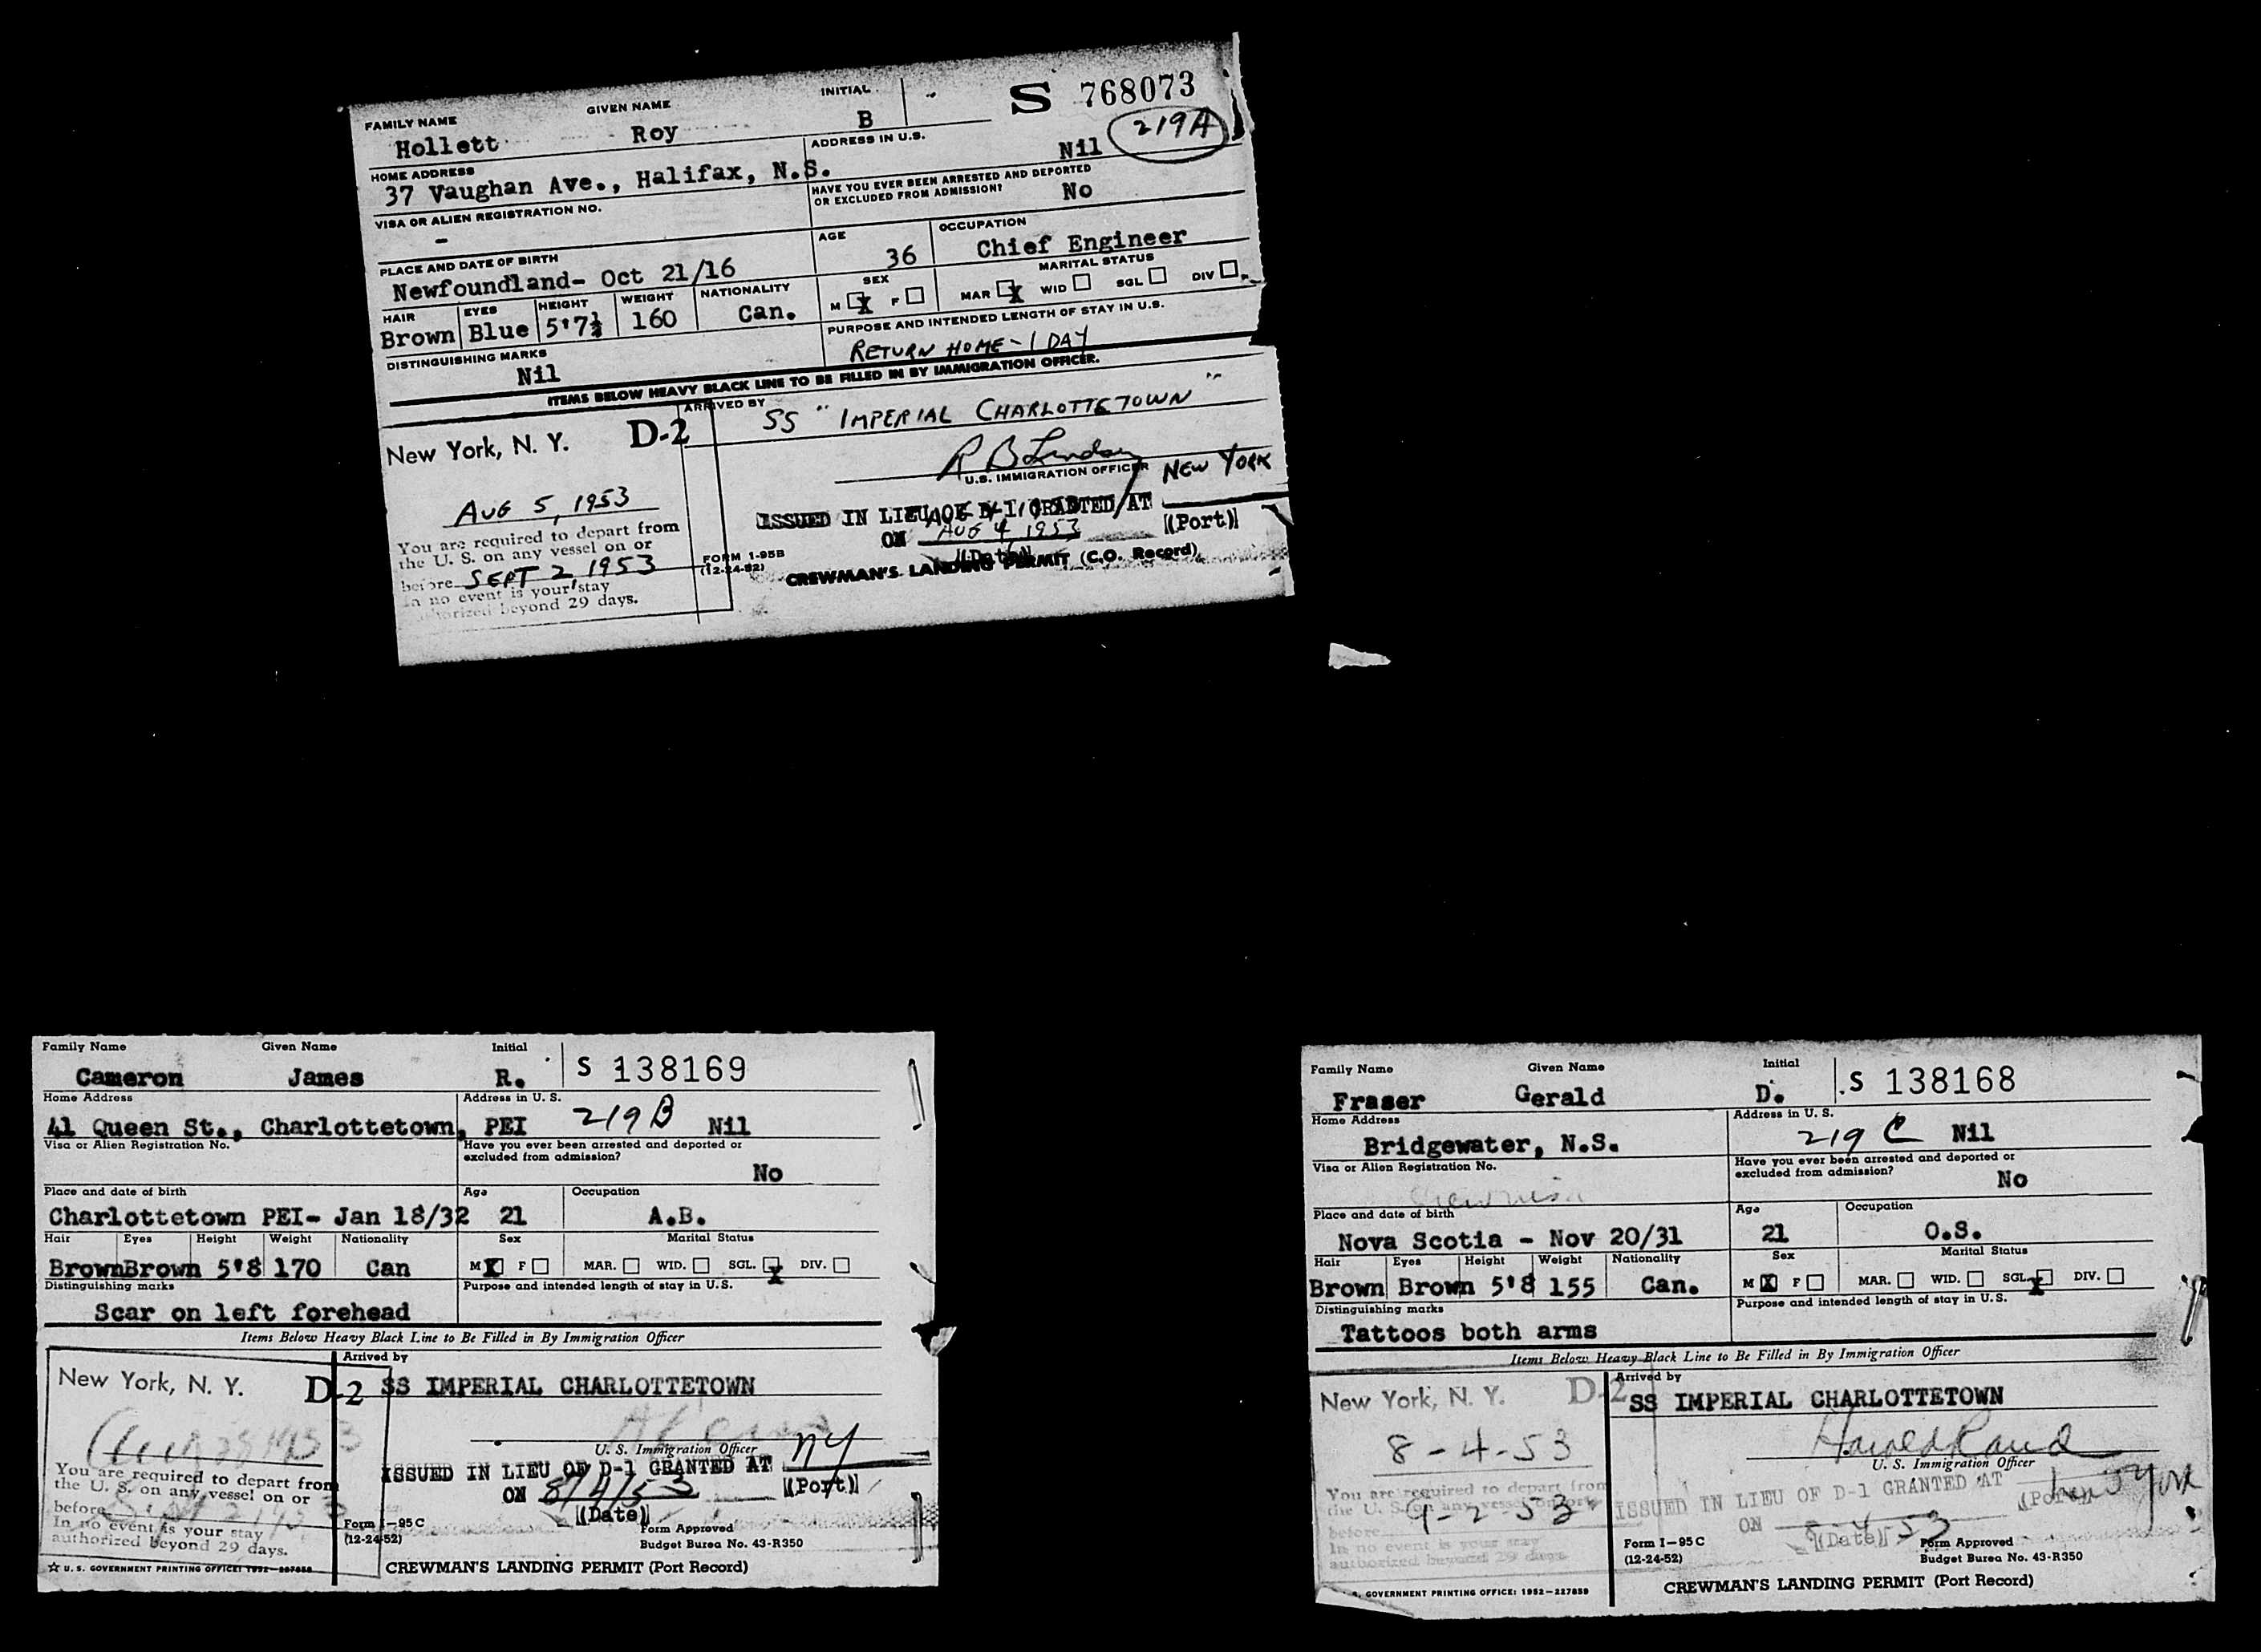 FAMILY NAME GIVEN NAME INITIAL S 768073
Hollett Roy B 219A
HOME ADDRESS ADDRESS IN U.S.
37 Vaughan Ave., Halifax, N.S. Nil
VISA OR ALIEN REGISTRATION NO. HAVE YOU EVER BEEN ARRESTED AND DEPORTED
OR EXCLUDED FROM ADMISSION?
- No
PLACE AND DATE OF BIRTH AGE OCCUPATION
Newfoundland- Oct 21/16 36 Chief Engineer
HAIR EYES HEIGHT WEIGHT NATIONALITY SEX MARITAL STATUS
Brown Blue 5'7½ 160 Can. M X F MAR X WID SGL DIV
DISTINGUISHING MARKS PURPOSE AND INTENDED LENGTH OF STAY IN U.S.
Nil RETURN HOME - 1 DAY
ITEMS BELOW HEAVY BLACK LINE TO BE FILLED IN BY IMMIGRATION OFFICER.
ARRIVED BY SS "IMPERIAL CHARLOTTETOWN"
New York, N. Y. D-2
R B Lindsay
U.S. IMMIGRATION OFFICER NEW YORK
AUG 5, 1953
ISSUED IN LIEU OF D-1 GRANTED AT (Port)
ON AUG 4, 1953
(Date)
You are required to depart from
the U. S. on any vessel on or
before SEPT 2, 1953
In no event is your stay
authorized beyond 29 days.
FORM 1-95B
(12-24-52)
CREWMAN'S LANDING PERMIT (C.O. Record)
Family Name Given Name Initial S 138169
Cameron James R.
Home Address Address in U. S.
41 Queen St., Charlottetown, PEI 219B Nil
Visa or Alien Registration No. Have you ever been arrested and deported or
excluded from admission?
No
Place and date of birth Age Occupation
Charlottetown PEI- Jan 18/32 21 A.B.
Hair Eyes Height Weight Nationality Sex Marital Status
Brown Brown 5'8 170 Can M X F MAR. WID. SGL. X DIV.
Distinguishing marks Purpose and intended length of stay in U.S.
Scar on left forehead
Items Below Heavy Black Line to Be Filled in By Immigration Officer
Arrived by
New York, N. Y. D-2 SS IMPERIAL CHARLOTTETOWN
U. S. Immigration Officer NY
ISSUED IN LIEU OF D-1 GRANTED AT (Port)
ON 8/4/53
(Date)
You are required to depart from
the U. S. on any vessel on or
before
In no event is your stay
authorized beyond 29 days.
Form I-95 C
(12-24-52)
Form Approved
Budget Bureau No. 43-R350
☆ U. S. GOVERNMENT PRINTING OFFICE:
CREWMAN'S LANDING PERMIT (Port Record)
Family Name Given Name Initial S 138168
Fraser Gerald D.
Home Address Address in U. S.
Bridgewater, N.S. 219 C Nil
Visa or Alien Registration No. Have you ever been arrested and deported or
excluded from admission?
No
Place and date of birth Age Occupation
Nova Scotia - Nov 20/31 21 O.S.
Hair Eyes Height Weight Nationality Sex Marital Status
Brown Brown 5'8 155 Can. M X F MAR. WID. SGL. X DIV.
Distinguishing marks Purpose and intended length of stay in U.S.
Tattoos both arms
Items Below Heavy Black Line to Be Filled in By Immigration Officer
Arrived by
New York, N. Y. D-2 SS IMPERIAL CHARLOTTETOWN
8-4-53 Harold Rand
U. S. Immigration Officer
ISSUED IN LIEU OF D-1 GRANTED AT New York (Port)
ON 8-4-53
(Date)
You are required to depart from
the U. S. on any vessel on or
before 9-2-53
In no event is your stay
authorized beyond 29 days.
Form I-95 C
(12-24-52)
Form Approved
Budget Bureau No. 43-R350
GOVERNMENT PRINTING OFFICE: 1952-227859
CREWMAN'S LANDING PERMIT (Port Record)